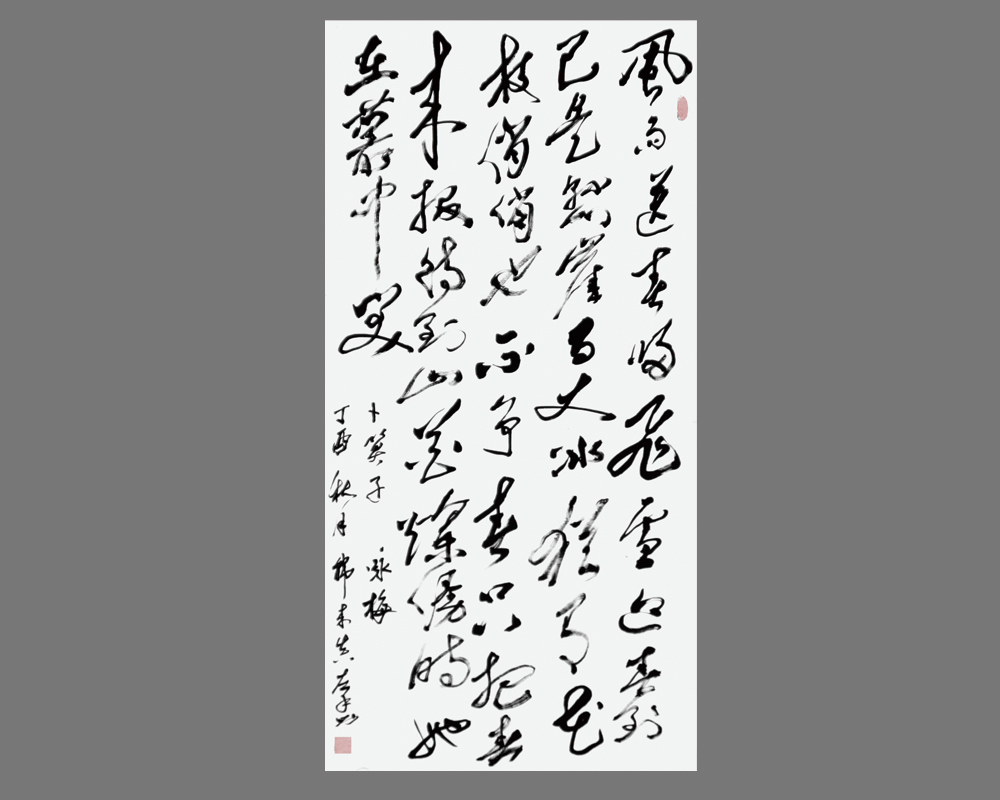 風雨送春歸飛雪迎春到
已是懸崖百丈冰猶有花
枝俏俏也不争春只把春
来报待到山花爛漫時她
在叢中笑
卜算子 咏梅
丁酉秋月